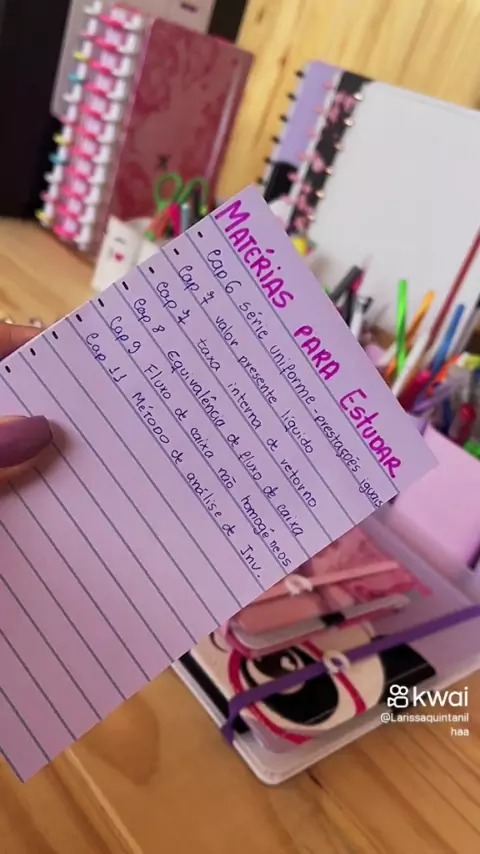 MATÉRIAS PARA ESTUDAR
Cap 6 série uniforme - prestações iguais
Cap 7 valor presente líquido
Cap 7 taxa interna de retorno
Cap 8 Equivalência de fluxo de caixa
Cap 9 Fluxo de caixa não homogêneos
Cap 11 Método de análise de Inv.
kwai
@Larissaquintanil
haa